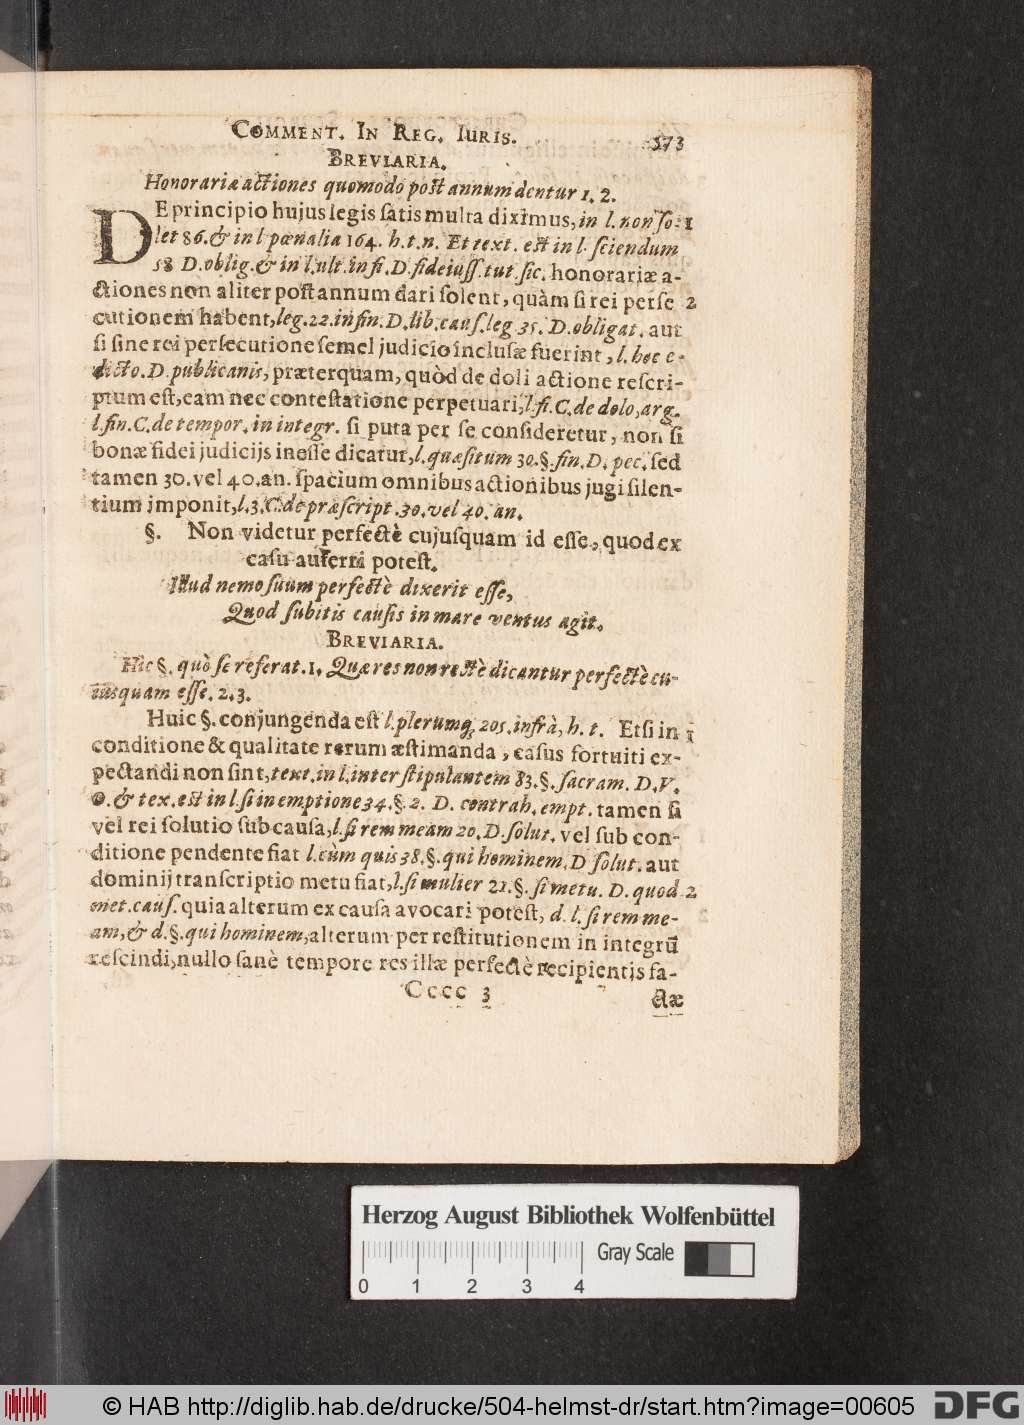 COMMENT. IN REG. IURIS. 573
BREVIARIA.
Honorariæ actiones quomodo post annum dentur 1. 2.
DE principio hujus legis ſatis multa diximus, in l. non ſo- 1
let 86. & in l pœnalia 164. h. t. n. Et text. est in l. ſciendum
58 D. oblig. & in l. ult. in fi. D. fideiuſſ. tut. ſic. honorariæ a-
ctiones non aliter poſt annum dari ſolent, quàm ſi rei perſe 2
cutionem habent, leg. 22. in fin. D. lib. cauſ. leg 35. D. obligat. aut
ſi ſine rei perſecutione ſemel judicio incluſæ fuerint, l. hoc e-
dicto. D. publicanis, præterquam, quòd de doli actione reſcri-
ptum eſt, eam nec conteſtatione perpetuari, l. fi. C. de dolo, arg.
l. fin. C. de tempor. in integr. ſi puta per ſe conſideretur, non ſi
bonæ fidei judicijs ineſſe dicatur, l. quæſitum 30. §. fin. D. pec. ſed
tamen 30. vel 40. an. ſpacium omnibus actionibus jugi ſilen-
tium imponit, l. 3. C. de præſcript. 30. vel 40. an.
§. Non videtur perfectè cujuſquam id eſſe, quod ex
caſu auferri poteſt.
Illud nemo ſuum perfectè dixerit eſſe,
Quod ſubitis cauſis in mare ventus agit.
BREVIARIA.
Hic §. quò ſe referat. 1. Quæ res non rectè dicantur perfectè cu-
iusquam eſſe. 2. 3.
Huic §. conjungenda eſt l. plerumq; 205. infrà, h. t. Etſi in 1
conditione & qualitate rerum æſtimanda, caſus fortuiti ex-
pectandi non ſint, text. in l. inter ſtipulantem 83. §. ſacram. D. V.
O. & tex. est in l. ſi in emptione 34. §. 2. D. contrah. empt. tamen ſi
vel rei ſolutio ſub cauſa, l. ſi rem meam 20. D. ſolut. vel ſub con-
ditione pendente fiat l. cùm quis 38. §. qui hominem. D ſolut. aut
dominij tranſcriptio metu fiat, l. ſi mulier 21. §. ſi metu. D. quod 2
met. cauſ. quia alterum ex cauſa avocari poteſt, d. l. ſi rem me-
am, & d. §. qui hominem, alterum per reſtitutionem in integrū
reſcindi, nullo ſanè tempore res illæ perfectè recipientis fa-
Cccc 3 ctæ
Herzog August Bibliothek Wolfenbüttel
Gray Scale
0 1 2 3 4
© HAB http://diglib.hab.de/drucke/504-helmst-dr/start.htm?image=00605 DFG